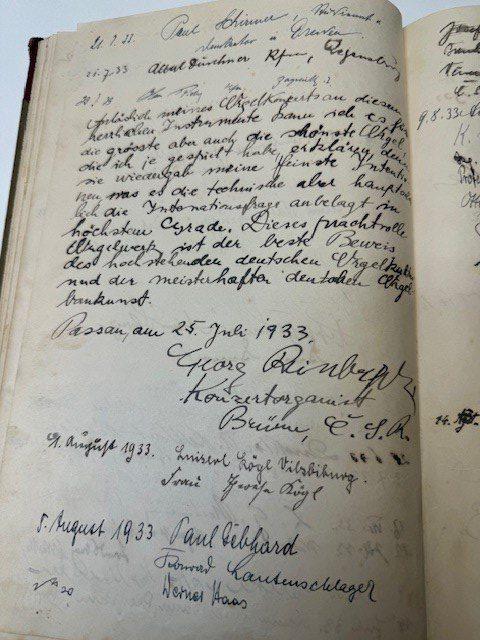 21.7.33. Paul Schirmer
u. Dresden
21.7.33 Rfm, Regensburg
anläßlich meines Orgelkonzerts an diesem
herrlichen Instrumente kann ich es für
die grösste aber auch die schönste Orgel
die ich je gespielt habe, erklären, denn
sie wiedergab meine feinste Intentio-
nen was es die technische aber hauptsäch-
lich die Intonationsfrage anbelagt in
höchstem Grade. Dieses prachtvolle
Orgelwerk ist der beste Beweis
des hochstehenden deutschen Orgelkultur
und der meisterhaften deutschen Orgel-
baukunst.
Passau, am 25. Juli 1933.
Georg
Konzertorganist
Brünn, Č.S.R.
4. August 1933. Kögl Vilsbiburg.
Frau Kögl
5. August 1933 Paul Gebhard
Konrad Lautenschlager
Werner Haas
9.8.33
K.
14. Aug.